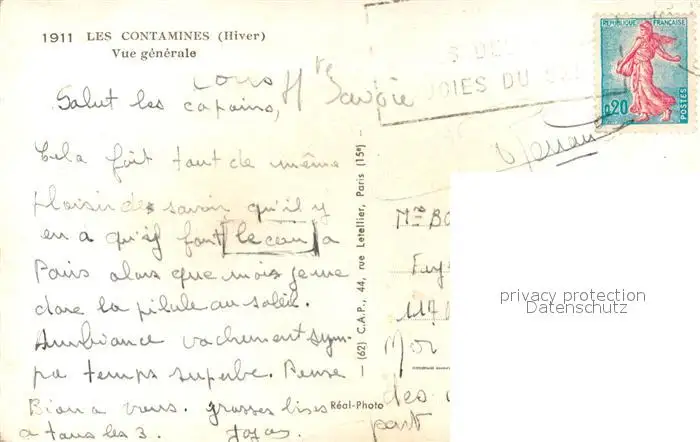 1911 LES CONTAMINES (Hiver)
Vue générale
Hte Savoie
Salut les copains,
Cela fait tout de même
plaisir de savoir qu'il y
en a qui font le con a
Paris alors que moi je me
dore la pilule au soleil.
Ambiance vachement sym-
pa temps superbe. Pense
Bien a vous. grosses bises
a tous les 3.
(62) C.A.P., 44, rue Letellier, Paris (15e)
Réal-Photo
REPUBLIQUE FRANÇAISE
0,20
POSTES
JOIES DU
117
des
part
privacy protection
Datenschutz